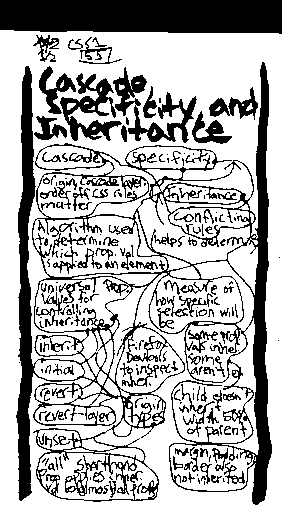 CSS1
1551
Cascade,
Specificity, and
Inheritance
Cascade
Specificity
origin, cascade layer,
order of CSS rules
matter
Inheritance
Conflicting
rules
helps to determine
Algorithm used
to determine
which prop. val
is applied to an element
Universal Props
Values for
controlling
inheritance
Measure of
how specific
selection will
be
inherit
initial
revert
revert-layer
unset
Firefox
Devtools
to inspect
inher.
origin
types
some prop
vals inher.
some
aren't
child doesn't
inherit
width 50%
of parent
margin, padding,
border also
not inherited
"all" shorthand
prop applies inher.